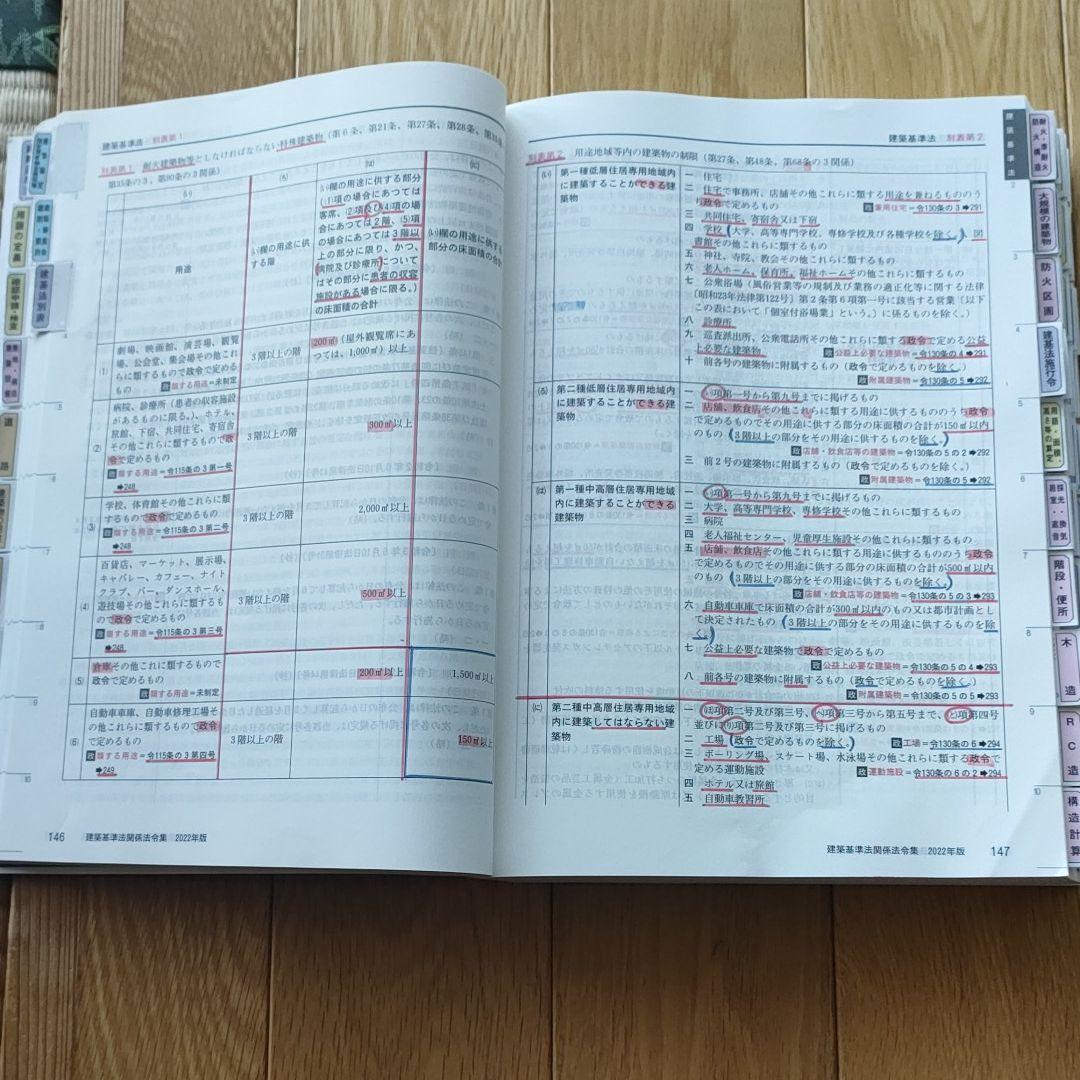 建築基準法 別表第1
別表第1 耐火建築物等としなければならない特殊建築物（第6条、第21条、第27条、第28条、第35条の3、第90条の3関係）
(い)
(ろ)
(は)
(に)
用途
(い)欄の用途に供する階
(い)欄の用途に供する部分
((1)項の場合にあつては
客席、(2)項及び(4)項の場
合にあつては2階、(5)項
の場合にあつては3階以
上の部分に限り、かつ、
病院及び診療所について
はその部分に患者の収容
施設がある場合に限る。)
の床面積の合計
(い)欄の用途に供する
部分の床面積の合計
(1)
劇場、映画館、演芸場、観覧
場、公会堂、集会場その他これ
らに類するもので政令で定める
もの
政類する用途＝未制定
3階以上の階
200㎡（屋外観覧席にあ
つては、1,000㎡）以上
(2)
病院、診療所（患者の収容施設
があるものに限る。）、ホテル、
旅館、下宿、共同住宅、寄宿舎
その他これらに類するもので政
令で定めるもの
政類する用途＝令115条の3第一号
➡248
3階以上の階
300㎡以上
(3)
学校、体育館その他これらに類
するもので政令で定めるもの
政類する用途＝令115条の3第二号
➡248
3階以上の階
2,000㎡以上
(4)
百貨店、マーケット、展示場、
キャバレー、カフェー、ナイト
クラブ、バー、ダンスホール、
遊技場その他これらに類するも
ので政令で定めるもの
政類する用途＝令115条の3第三号
➡248
3階以上の階
500㎡以上
(5)
倉庫その他これに類するもので
政令で定めるもの
政類する用途＝未制定
200㎡以上
1,500㎡以上
(6)
自動車車庫、自動車修理工場そ
の他これらに類するもので政令
で定めるもの
政類する用途＝令115条の3第四号
➡249
3階以上の階
150㎡以上
146 建築基準法関係法令集 2022年版
建築基準法 別表第2
別表第2 用途地域等内の建築物の制限（第27条、第48条、第68条の3関係）
(い)
第一種低層住居専用地域内
に建築することができる建
築物
一 住宅
二 住宅で事務所、店舗その他これらに類する用途を兼ねるもののう
ち政令で定めるもの
政兼用住宅＝令130条の3➡291
三 共同住宅、寄宿舎又は下宿
四 学校（大学、高等専門学校、専修学校及び各種学校を除く。）、図
書館その他これらに類するもの
五 神社、寺院、教会その他これらに類するもの
六 老人ホーム、保育所、福祉ホームその他これらに類するもの
七 公衆浴場（風俗営業等の規制及び業務の適正化等に関する法律
（昭和23年法律第122号）第2条第6項第一号に該当する営業（以下
この表において「個室付浴場業」という。）に係るものを除く。）
八 診療所
九 巡査派出所、公衆電話所その他これらに類する政令で定める公益
上必要な建築物
政公益上必要な建築物＝令130条の4➡291
十 前各号の建築物に附属するもの（政令で定めるものを除く。）
政附属建築物＝令130条の5➡292
(ろ)
第二種低層住居専用地域内
に建築することができる建
築物
一 (い)項第一号から第九号までに掲げるもの
二 店舗、飲食店その他これらに類する用途に供するもののうち政令
で定めるものでその用途に供する部分の床面積の合計が150㎡以内
のもの（3階以上の部分をその用途に供するものを除く。）
政店舗・飲食店等の建築物＝令130条の5の2➡292
三 前2号の建築物に附属するもの（政令で定めるものを除く。）
政附属建築物＝令130条の5➡292
(は)
第一種中高層住居専用地域
内に建築することができる
建築物
一 (い)項第一号から第九号までに掲げるもの
二 大学、高等専門学校、専修学校その他これらに類するもの
三 病院
四 老人福祉センター、児童厚生施設その他これらに類するもの
五 店舗、飲食店その他これらに類する用途に供するもののうち政令
で定めるものでその用途に供する部分の床面積の合計が500㎡以内
のもの（3階以上の部分をその用途に供するものを除く。）
政店舗・飲食店等の建築物＝令130条の5の3➡293
六 自動車車庫で床面積の合計が300㎡以内のもの又は都市計画とし
て決定されたもの（3階以上の部分をその用途に供するものを除
く。）
七 公益上必要な建築物で政令で定めるもの
政公益上必要な建築物＝令130条の5の4➡293
八 前各号の建築物に附属するもの（政令で定めるものを除く。）
政附属建築物＝令130条の5の5➡293
(に)
第二種中高層住居専用地域
内に建築してはならない建
築物
一 (ほ)項第二号及び第三号、(へ)項第三号から第五号まで、(と)項第四号
並びに(り)項第二号及び第三号に掲げるもの
二 工場（政令で定めるものを除く。）
政工場＝令130条の6➡294
三 ボーリング場、スケート場、水泳場その他これらに類する政令で
定める運動施設
政運動施設＝令130条の6の2➡294
四 ホテル又は旅館
五 自動車教習所
建築基準法関係法令集 2022年版 147
建築基準法
耐火・準耐火
防火構造
大規模の建築物
防火区画
建築基準法施行令
階段・便所
木造
RC造
構造計算
用語の定義
建基法別表
道路